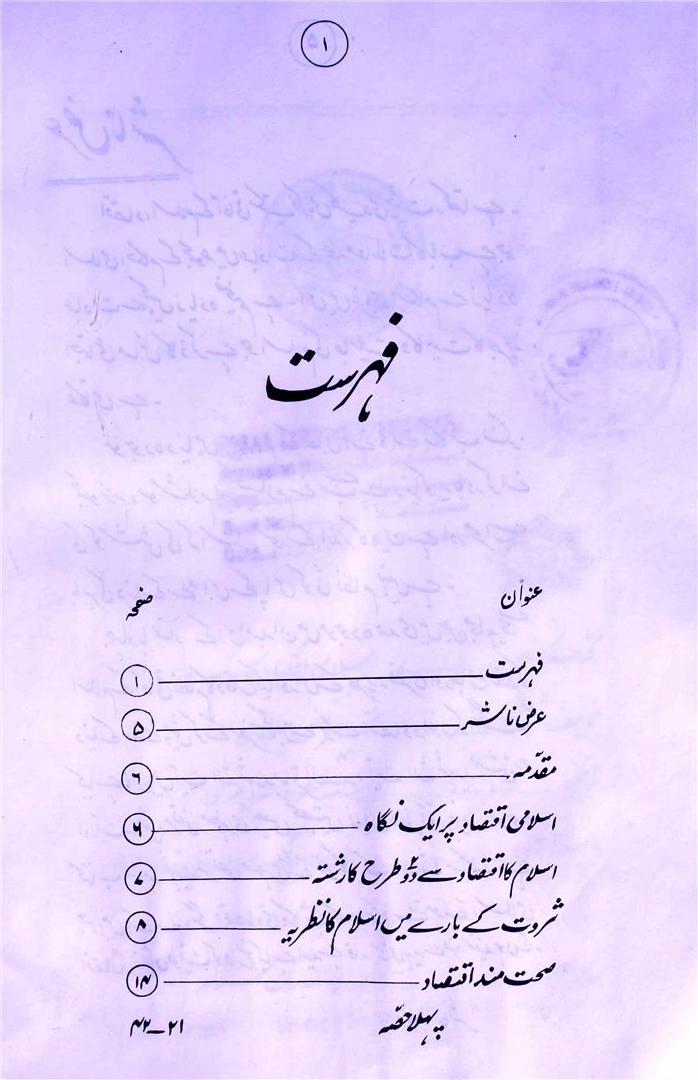 ۱
فہرست
عنوان صفحہ
فہرست ۱
عرض ناشر ۵
مقدّمہ ۶
اسلامی اقتصاد پر ایک نگاہ ۶
اسلام کا اقتصاد سے دو۲ طرح کا رشتہ ۷
ثروت کے بارے میں اسلام کا نظریہ ۸
صحت مند اقتصاد ۱۴
پہلا حصّہ ۲۱ــ۴۲